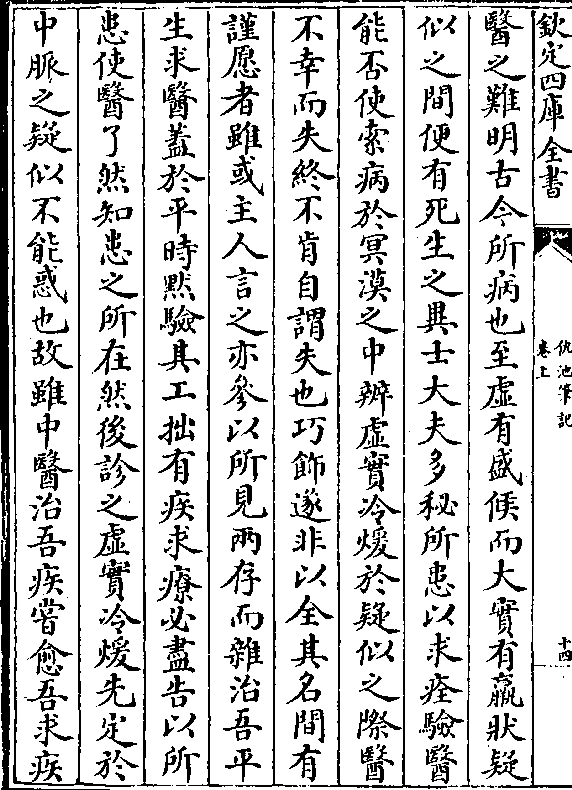 欽定四庫全書
仇池筆記
卷上
十四
醫之難明古今所病也至虛有盛候而大實有羸狀疑
似之間便有死生之異士大夫多秘所患以求痊驗醫
能否使索病於冥漠之中辨虛實冷煖於疑似之際醫
不幸而失終不肯自謂失也巧飾遂非以全其名間有
謹愿者雖或主人言之亦參以所見兩存而雜治吾平
生求醫蓋於平時黙驗其工拙有疾求療必盡告以所
患使醫了然知患之所在然後診之虛實冷煖先定於
中脈之疑似不能惑也故雖中醫治吾疾嘗愈吾求疾